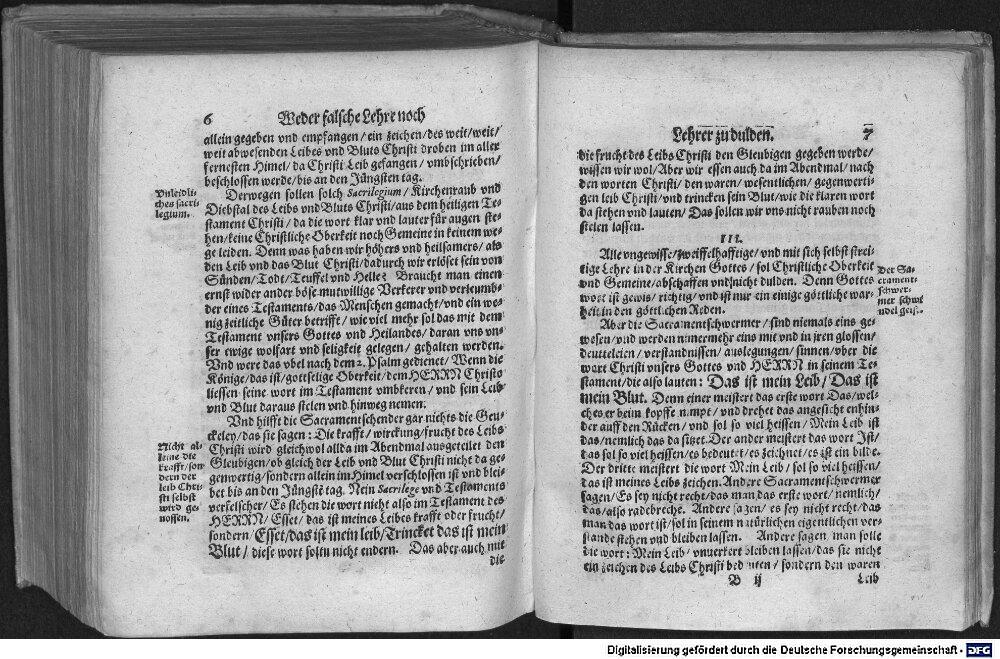 6 Weder falsche Lehre noch
allein gegeben vnd empfangen/ ein zeichen/ des weit/ weit/
weit abwesenden Leibes vnd Bluts Christi droben im aller
fernesten Himel/ da Christi Leib gefangen/ vmbschrieben/
beschlossen werde/ bis an den Jüngsten tag.
Vnleidli-
ches sacri-
legium.
Derwegen sollen solch Sacrilegium/ Kirchenraub vnd
Diebstal des Leibs vnd Bluts Christi/ aus dem heiligen Te-
stament Christi/ da die wort klar vnd lauter für augen ste-
hen/ keine Christliche Oberkeit noch Gemeine in keinem we-
ge leiden. Denn was haben wir höhers vnd heilsamers/ als
den Leib vnd das Blut Christi/ dadurch wir erlöset sein von
Sünden/ Todt/ Teuffel vnd Helle? Braucht man einen
ernst wider ander böse mutwillige Verkerer vnd verleumb-
der eines Testaments/ das Menschen gemacht/ vnd ein we-
nig zeitliche Güter betrifft/ wie viel mehr sol das mit dem
Testament vnsers Gottes vnd Heilandes/ daran vns vn-
ser ewige wolfart vnd seligkeit gelegen/ gehalten werden.
Vnd were das vbel nach dem 2. Psalm gedienet/ Wenn die
Könige/ das ist/ gottselige Oberkeit/ dem HERRN Christo
liessen seine wort im Testament vmbkeren/ vnd sein Leib
vnd Blut daraus stelen vnd hinweg nemen.
Nicht al-
leine die
krafft/ son
dern der
leib Chri-
sti selbst
wird ge-
nossen.
Vnd hilfft die Sacramentschender gar nichts die Geu-
ckeley/ das sie sagen: Die krafft/ wirckung/ frucht des Leibs
Christi wird gleichwol allda im Abendmal ausgeteilet den
Gleubigen/ ob gleich der Leib vnd Blut Christi nicht da ge-
genwertig/ sondern allein im Himel verschlossen ist vnd blei-
bet bis an den Jüngstē tag. Nein Sacrilege vnd Testaments
verfelscher/ Es stehen die wort nicht also im Testament des
HERRN/ Esset/ das ist meines Leibes krafft oder frucht/
sondern/ Esset/ das ist mein leib/ Trincket das ist mein
Blut/ diese wort soltu nicht endern. Das aber auch mit
die
Lehrer zu dulden. 7
die frucht des Leibs Christi den Gleubigen gegeben werde/
wissen wir wol/ Aber wir essen auch da im Abendmal/ nach
den worten Christi/ den waren/ wesentlichen/ gegenwerti-
gen leib Christi/ vnd trincken sein Blut/ wie die klaren wort
da stehen vnd lauten/ Das sollen wir vns nicht rauben noch
stelen lassen.
III.
Alle vngewisse/ zweiffelhafftige/ vnd mit sich selbst strei-
tige Lehre in der Kirchen Gottes/ sol Christliche Oberkeit
vnd Gemeine/ abschaffen vnd nicht dulden. Denn Gottes
wort ist gewis/ richtig/ vnd ist nur ein einige göttliche war-
heit in den göttlichen Reden.
Der Sa-
crament-
schwer-
mer schwi
ndel geist.
Aber die Sacramentschwermer/ sind niemals eins ge-
wesen/ vnd werden nimmermehr eins mit vnd in jren glossen/
deuteleien/ verstandnissen/ auslegungen/ sinnen/ vber die
wort Christi vnsers Gottes vnd HERRN in seinem Te-
stament/ die also lauten: Das ist mein Leib/ Das ist
mein Blut. Denn einer meistert das erste wort Das/ wel-
ches er beim kopffe nimpt/ vnd drehet das angesicht enhin-
der auff den Rücken/ vnd sol so viel heissen/ Mein Leib ist
das/ nemlich das da sitzet. Der ander meistert das wort Ist/
das sol so viel heissen/ es bedeutet/ es zeichnet/ es ist ein bilde.
Der dritte meistert die wort Mein Leib/ sol so viel heissen/
das ist meines Leibs zeichen. Andere Sacramentschwermer
sagen/ Es sey nicht recht/ das man das erste wort/ nemlich/
das/ also radebreche. Andere sagen/ es sey nicht recht/ das
man das wort ist/ sol in seinem natürlichen eigentlichen ver-
stande stehen vnd bleiben lassen. Andere sagen/ man solle
die wort: Mein Leib/ vnuerkert bleiben lassen/ das sie nicht
ein zeichen des Leibs Christi bedeuten/ sondern den waren
B ij Leib
Digitalisierung gefördert durch die Deutsche Forschungsgemeinschaft - DFG